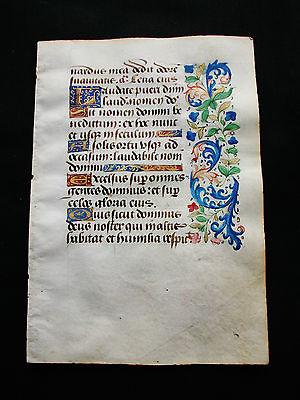 nardus mea dedit odorē
suavitatis. a. Leva eius
Laudate pueri dm̄
laud. nomen dō
Sit nomen domini be
nedictum: ex hoc nunc
et usq; in seculum
A solis ortu usq; ad
occasum: laudabile nom
domini
Excelsus sup omnes
gentes dominus: et sup
celos gloria eius.
Quis sicut dominus
deus noster qui in altis
habitat et humilia respic